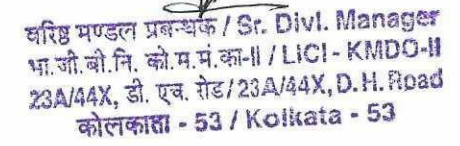 वरिष्ठ मण्डल प्रबन्धक / Sr. Divl. Manager
भा.जी.बी.नि. को.म.मं.का-II / LICI - KMDO-II
23A/44X, डी. एच. रोड/23A/44X, D. H. Road
कोलकाता - 53 / Kolkata - 53